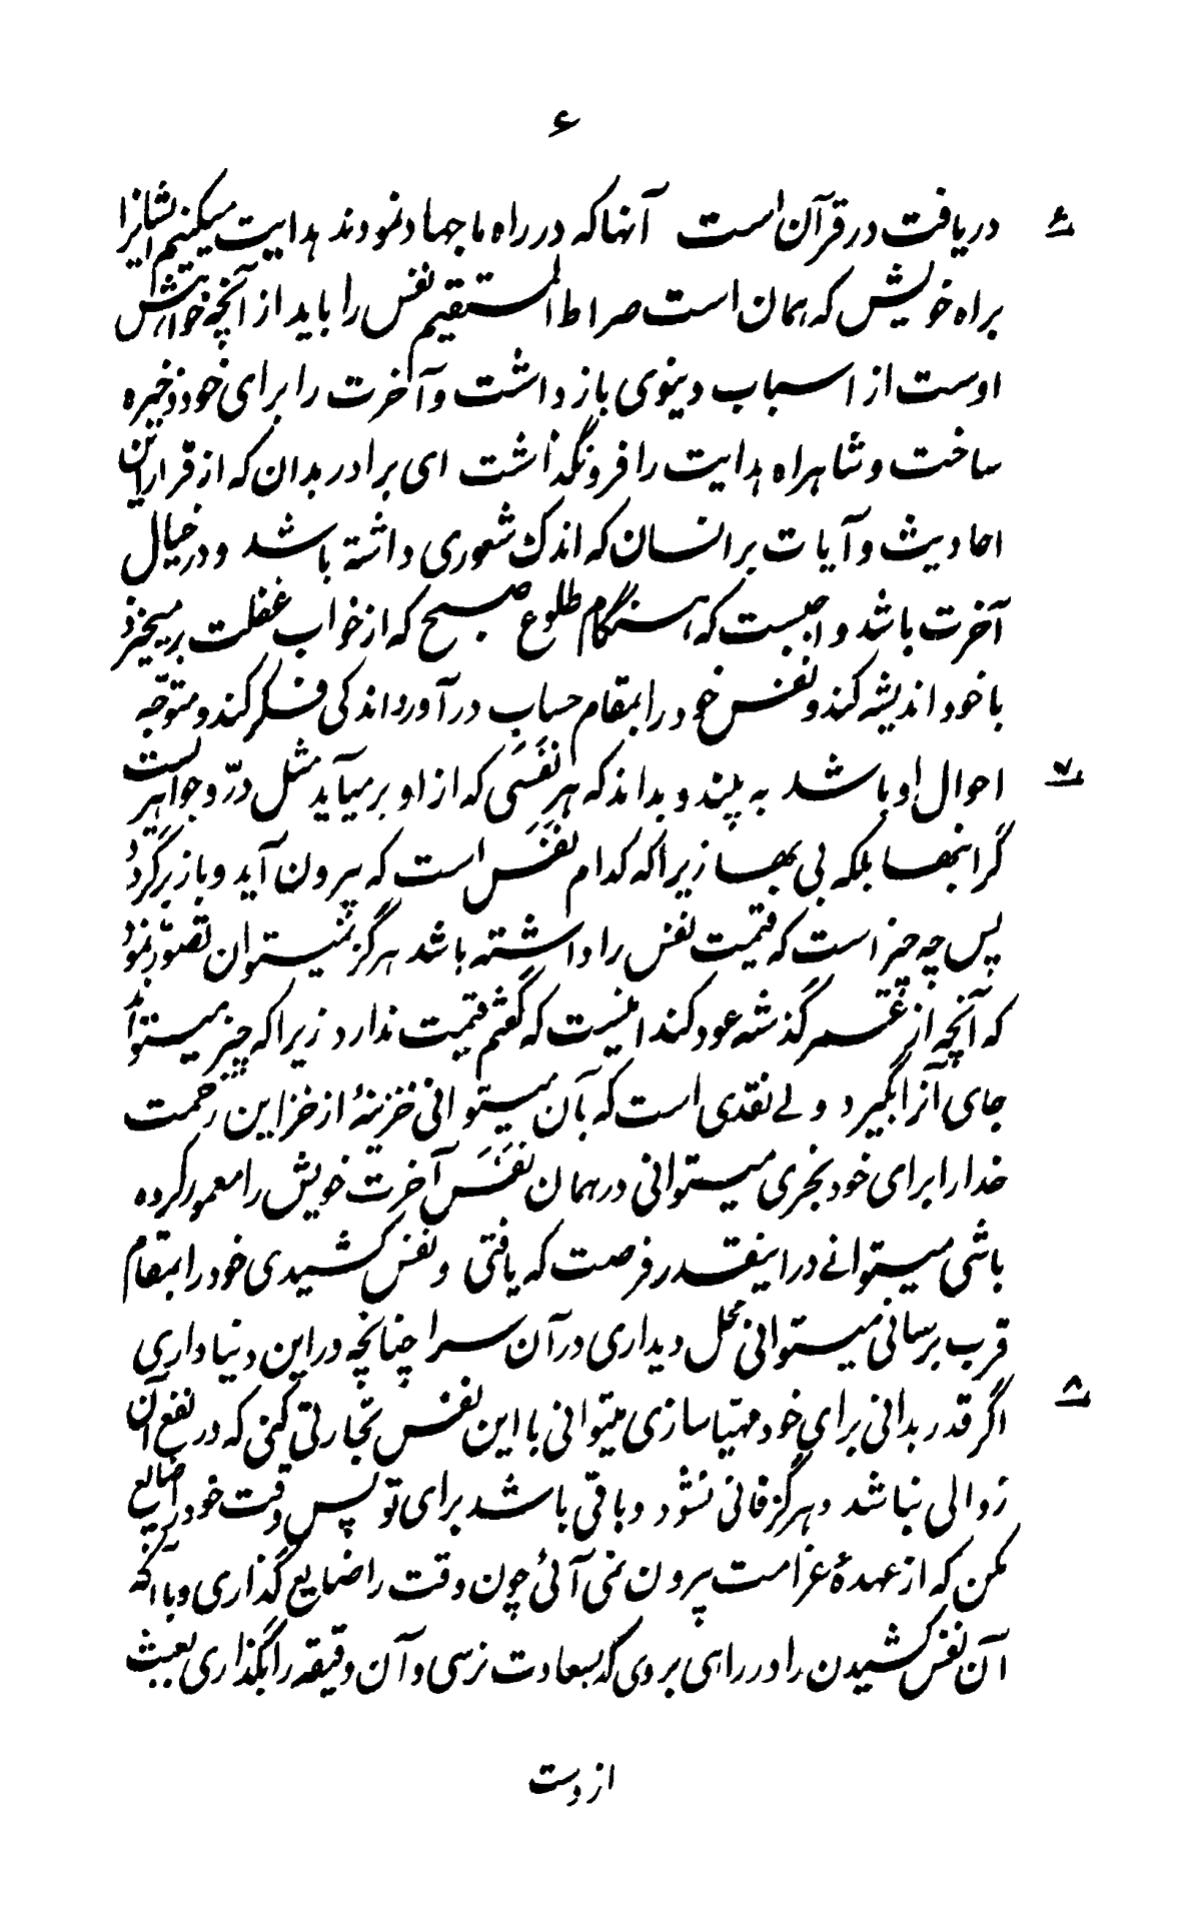 ۶
۶ دریافت در قرآن است آنها که در راه ما جهاد نمودند هدایت میکنیم ایشانرا
براه خویش که همان است صراط المستقیم نفس را باید از آنچه خواهش
اوست از اسباب دینوی باز داشت و آخرت را برای خود ذخیره
ساخت و شاهراه هدایت را فرونگذاشت ای برادر بدان که از قرار این
احادیث و آیات بر انسان که اندک شعوری داشته باشد و در خیال
آخرت باشد واجبست که هنگام طلوع صبح که از خواب غفلت برمیخیزد
با خود اندیشه کند و نفس خود را بمقام حساب در آورد اندکی فکر کند و متوجّه
۷ احوال او باشد به بیند و بداند که هر نَفَسَی که از او برمیآید مثل درّ و جواهریست
گرانبها بلکه بی بها زیرا که کدام نَفَس است که بیرون آید و باز برگردد
پس چه چیز است که قیمت نفس را داشته باشد هرگز نمیتوان تصوّر نمود
که آنچه از عمر گذشته عود کند اینست که گفتم قیمت ندارد زیرا که چیز نمیتواند
جای آنرا بگیرد ولے نقدی است که بآن میتوانی خزینهٔ از خزاین رحمت
خدا را برای خود بخری میتوانی در همان نَفَس آخرت خویش را معمور کرده
باشی میتوانے در اینقدر فرصت که یافتی و نفس کشیدی خود را بمقام
قرب برسانی میتوانی محل دیداری در آن سرا چنانچه در این دنیا داری
۸ اگر قدر بدانی برای خود مهیّا سازی میتوانی با این نفس تجارتی کنی که در نفع آن
زوالی نباشد و هرگز فانی نشود و باقی باشد برای تو پس وقت خود را ضایع
مکن که از عهدهٔ غرامت بیرون نمی آئی چون وقت را ضایع گذاری و با آنکه
آن نفس کشیدن را در راهی بروی که بسعادت نرسی و آن دقیقه را بگذاری بعبث
از دست